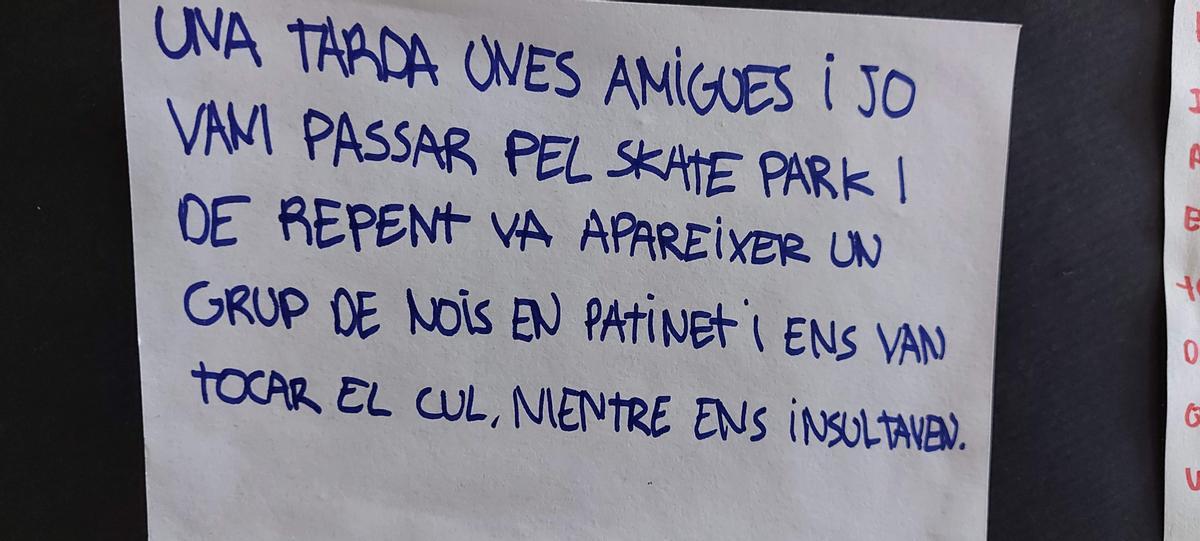 UNA TARDA UNES AMIGUES I JO
VAM PASSAR PEL SKATE PARK I
DE REPENT VA APAREIXER UN
GRUP DE NOIS EN PATINET I ENS VAN
TOCAR EL CUL, MENTRE ENS INSULTAVEN.